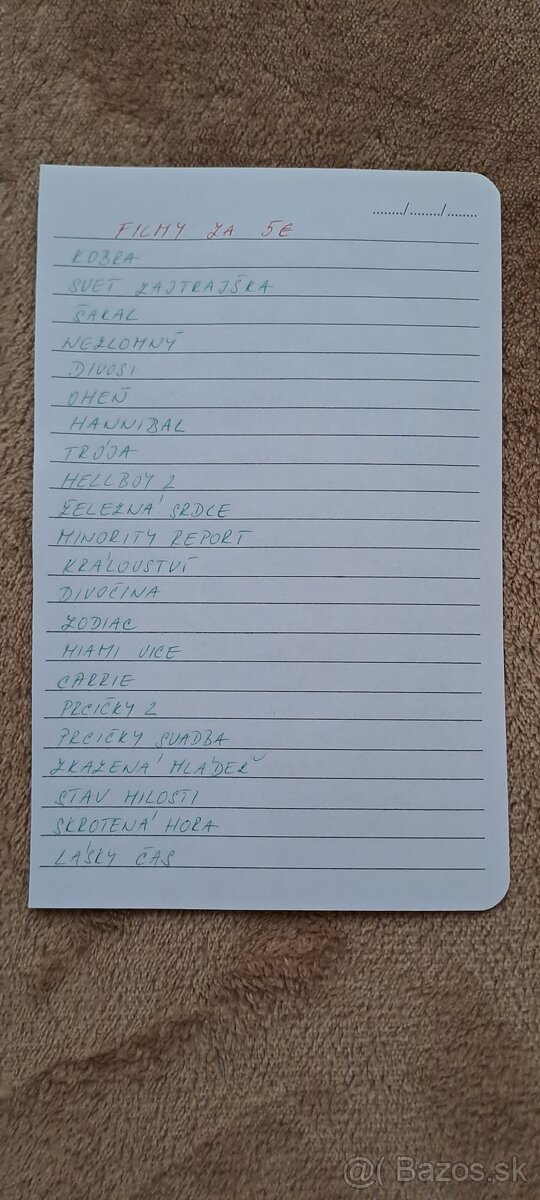 ......../......../........
FILMY ZA 5€
KOBRA
SVET ZAJTRAJŠKA
ŠAKAL
NEZLOMNÝ
DIVOSI
OHEŇ
HANNIBAL
TRÓJA
HELLBOY 2
ŽELEZNÁ SRDCE
MINORITY REPORT
KRÁLOVSTVÍ
DIVOČINA
ZODIAC
MIAMI VICE
CARRIE
PRCIČKY 2
PRCIČKY SVADBA
ZKAŽENÁ MLÁDEŽ
STAV MILOSTI
SKROTENÁ HORA
LÁSKY ČAS
@( Bazos.sk